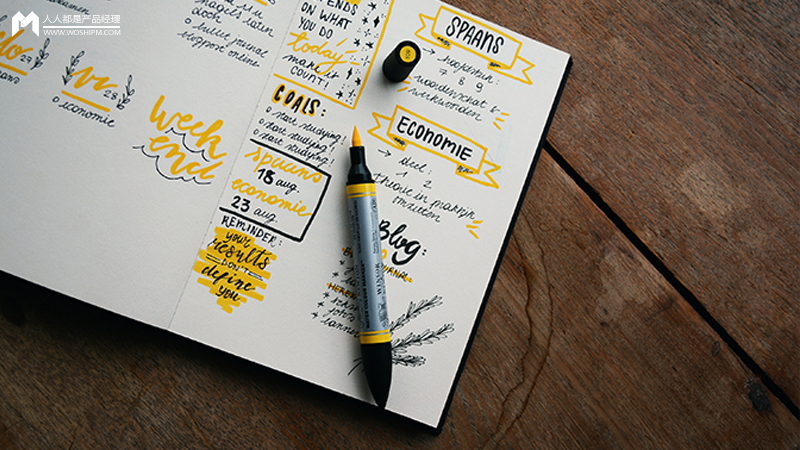 人人都是产品经理
WWW.WOSHIPM.COM
o bullet journal
support online
29
28
o economie
week
end
ON WHAT
YOU DO
today
make it
COUNT!
GOALS:
o start studying!
o start studying!
o start studying!
spaans
18 aug.
economie
23 aug.
REMINDER:
your
results
DON'T
define
you
SPAANS
→ hoofdstuk:
7 8 9
woordenschat &
werkwoorden
ECONOMIE
→ deel:
1 2
theorie in
omzetten
Blog:
WINSOR